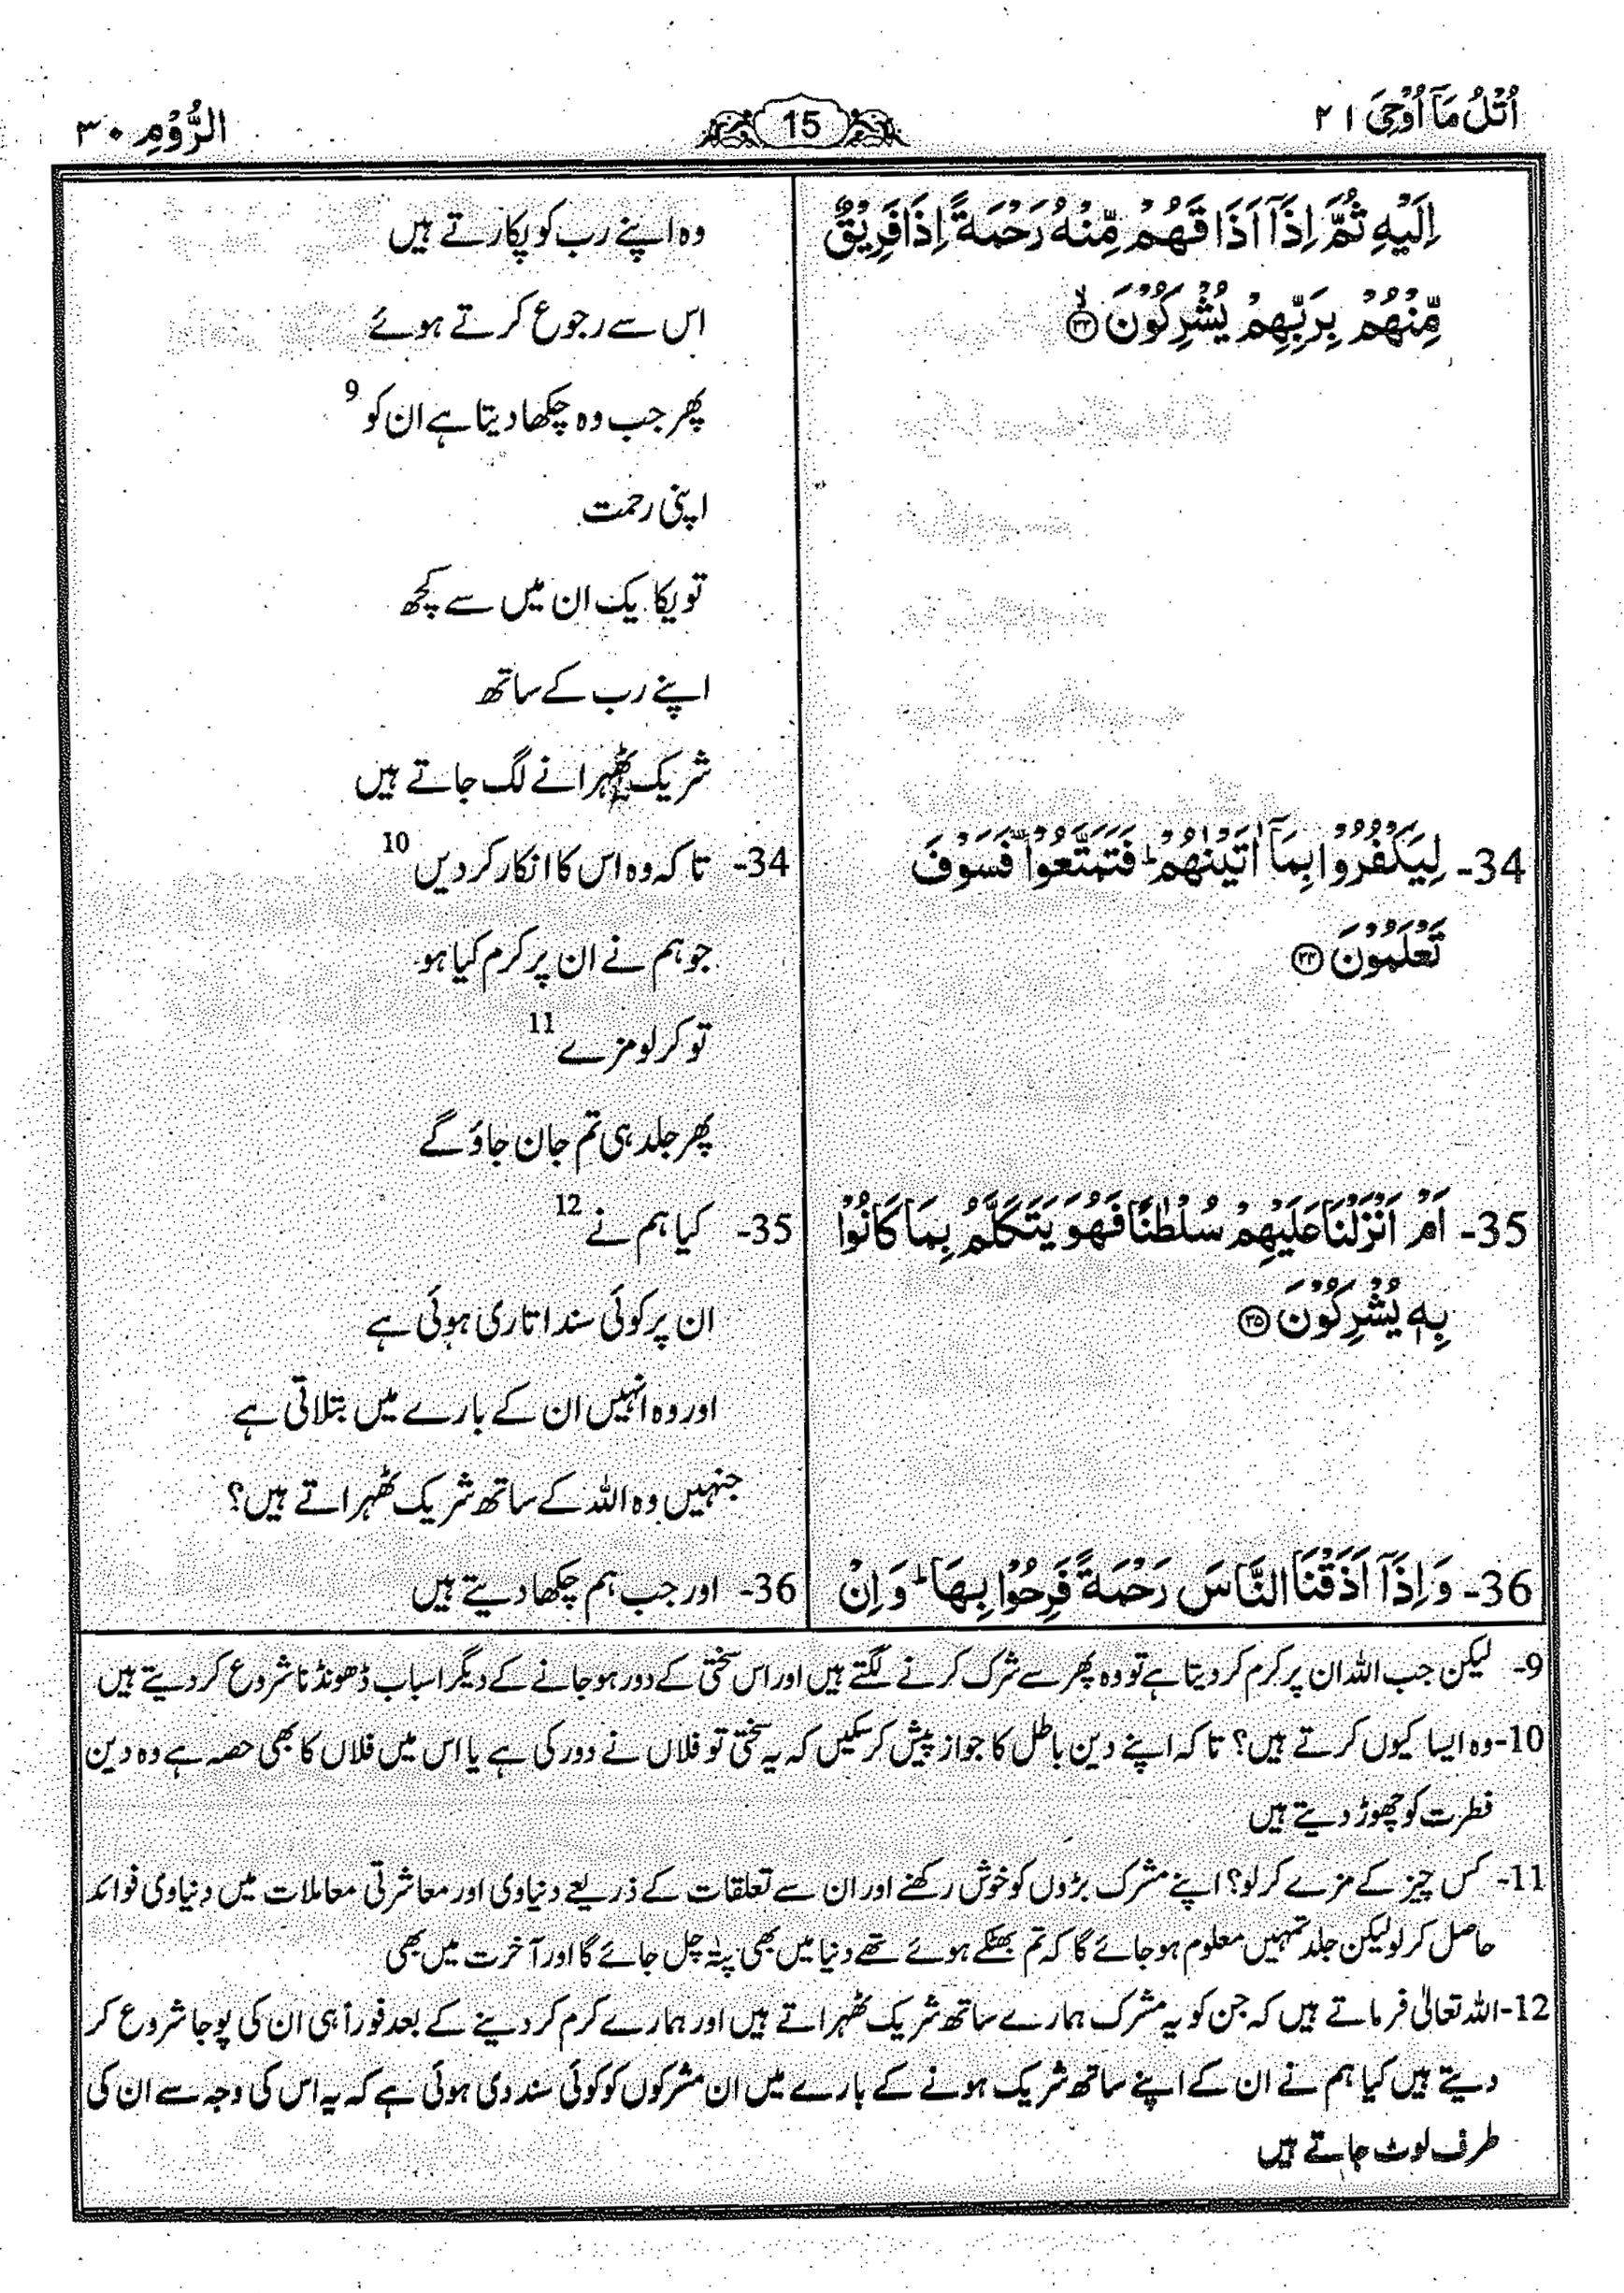 اُتْلُ مَاۤ اُوْحِیَ ۲۱
15
الرُّوْمِ ۳۰
اِلَیْهِ ثُمَّ اِذَاۤ اَذَاقَهُمْ مِّنْهُ رَحْمَةً اِذَا فَرِیْقٌ
مِّنْهُمْ بِرَبِّهِمْ یُشْرِكُوْنَ ۙ﴿۳۳﴾
34- لِیَكْفُرُوْا بِمَاۤ اٰتَیْنٰهُمْ ؕ فَتَمَتَّعُوْا ۥ فَسَوْفَ
تَعْلَمُوْنَ ﴿۳۴﴾
35- اَمْ اَنْزَلْنَا عَلَیْهِمْ سُلْطٰنًا فَهُوَ یَتَكَلَّمُ بِمَا كَانُوْا
بِهٖ یُشْرِكُوْنَ ﴿۳۵﴾
36- وَ اِذَاۤ اَذَقْنَا النَّاسَ رَحْمَةً فَرِحُوْا بِهَا ؕ وَ اِنْ
وہ اپنے رب کو پکارتے ہیں
اس سے رجوع کرتے ہوئے
پھر جب وہ چکھا دیتا ہے ان کو 9
اپنی رحمت
تو یکایک ان میں سے کچھ
اپنے رب کے ساتھ
شریک ٹھہرانے لگ جاتے ہیں
34- تاکہ وہ اس کا انکار کر دیں 10
جو ہم نے ان پر کرم کیا ہو
تو کر لو مزے 11
پھر جلد ہی تم جان جاؤ گے
35- کیا ہم نے 12
ان پر کوئی سند اتاری ہوئی ہے
اور وہ انہیں ان کے بارے میں بتلاتی ہے
جنہیں وہ اللہ کے ساتھ شریک ٹھہراتے ہیں؟
36- اور جب ہم چکھا دیتے ہیں
9- لیکن جب اللہ ان پر کرم کر دیتا ہے تو وہ پھر سے شرک کرنے لگتے ہیں اور اس سختی کے دور ہو جانے کے دیگر اسباب ڈھونڈنا شروع کر دیتے ہیں
10- وہ ایسا کیوں کرتے ہیں؟ تاکہ اپنے دین باطل کا جواز پیش کر سکیں کہ یہ سختی تو فلاں نے دور کی ہے یا اس میں فلاں کا بھی حصہ ہے وہ دین
فطرت کو چھوڑ دیتے ہیں
11- کس چیز کے مزے کر لو؟ اپنے مشرک بڑوں کو خوش رکھنے اور ان سے تعلقات کے ذریعے دنیاوی اور معاشرتی معاملات میں دنیاوی فوائد
حاصل کر لو لیکن جلد تمہیں معلوم ہو جائے گا کہ تم بھٹکے ہوئے تھے دنیا میں بھی پتہ چل جائے گا اور آخرت میں بھی
12- اللہ تعالیٰ فرماتے ہیں کہ جن کو یہ مشرک ہمارے ساتھ شریک ٹھہراتے ہیں اور ہمارے کرم کر دینے کے بعد فوراً ہی ان کی پوجا شروع کر
دیتے ہیں کیا ہم نے ان کے اپنے ساتھ شریک ہونے کے بارے میں ان مشرکوں کو کوئی سند دی ہوئی ہے کہ یہ اس کی وجہ سے ان کی
طرف لوٹ جاتے ہیں